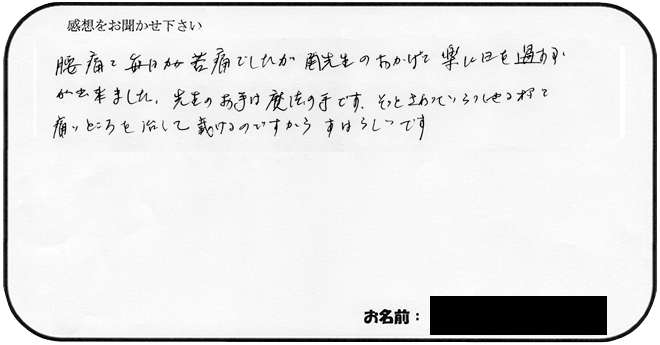 感想をお聞かせ下さい
腰痛で毎日が苦痛でしたが 先生のおかげで 楽しい日を過す事
が出来ました。先生のお手は魔法の手です、そっとさわっていらっしゃる
痛いところを治して戴けるのですから すばらしいです
お名前：